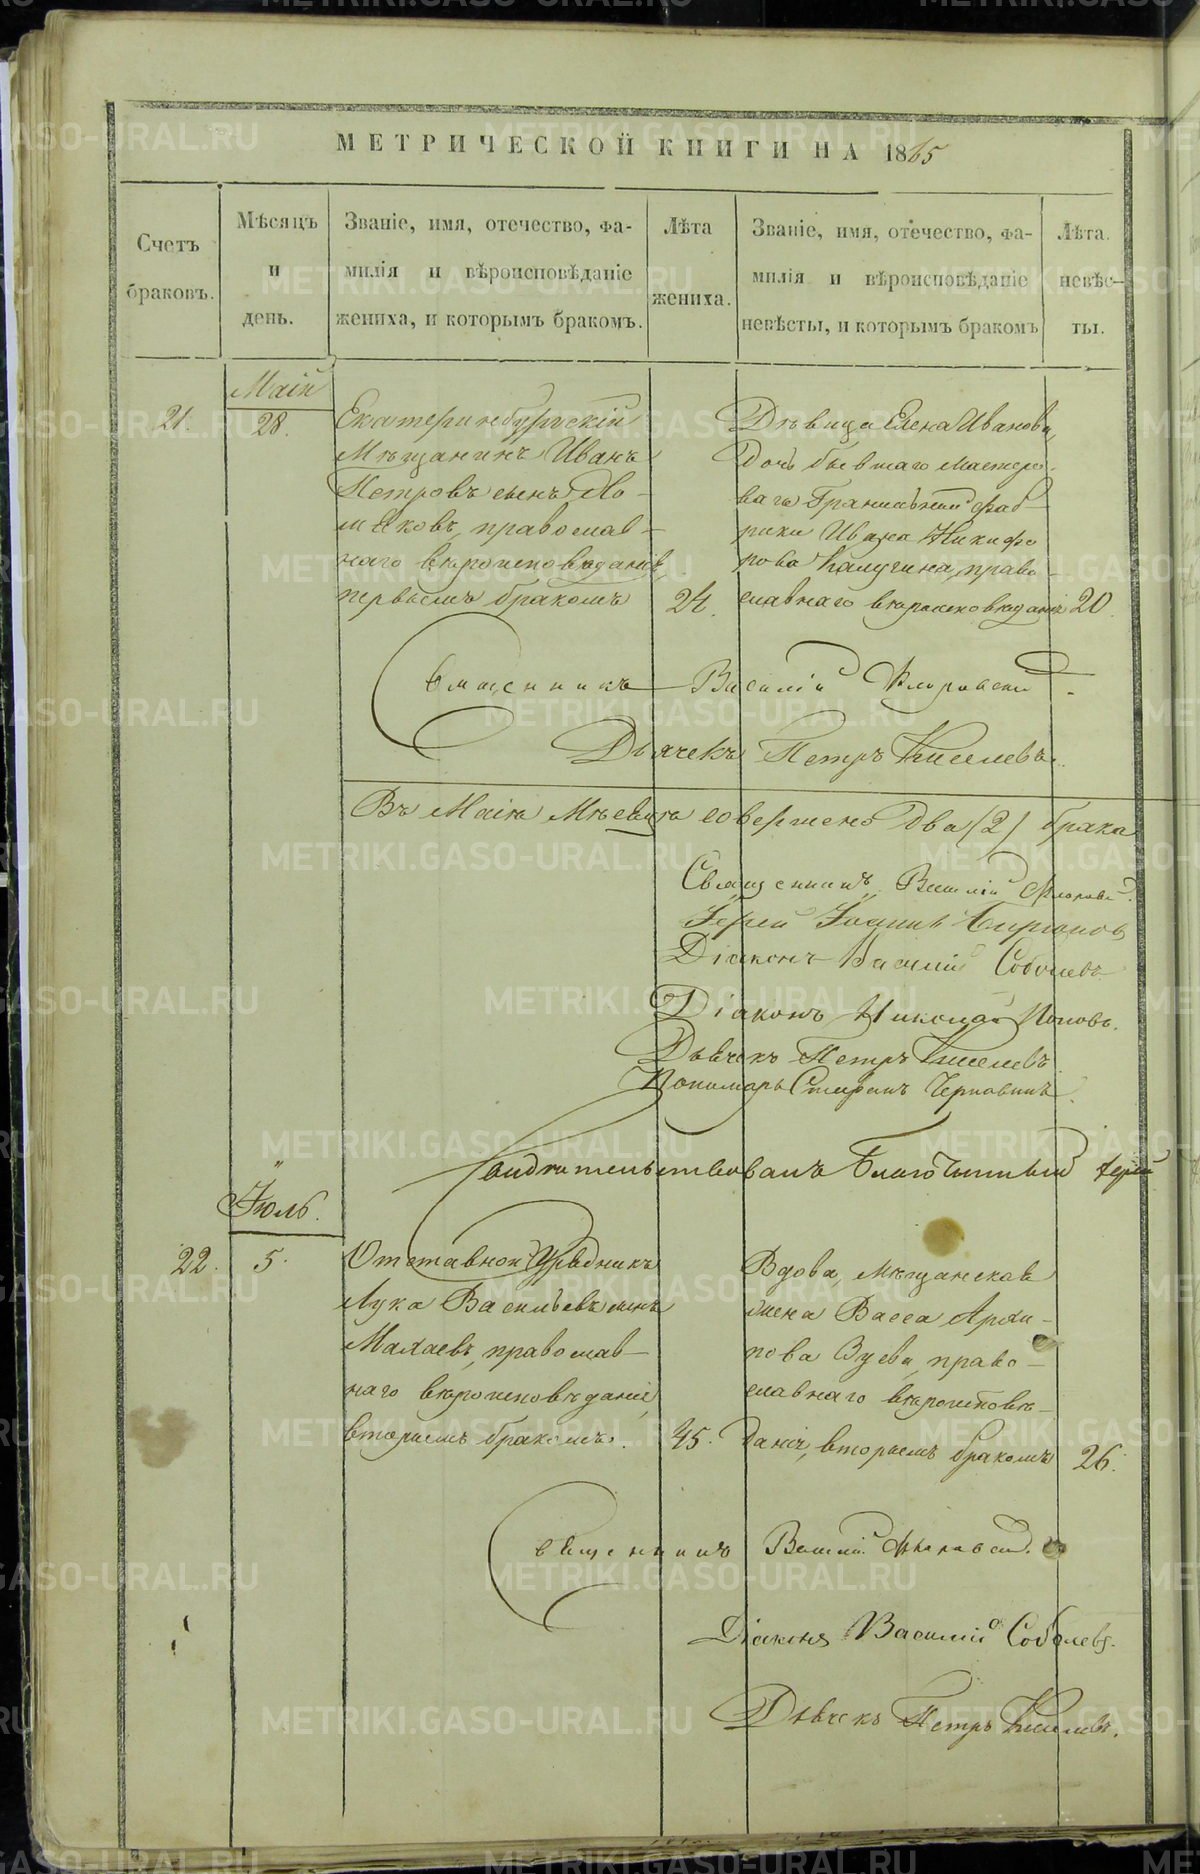 МЕТРИЧЕСКОЙ КНИГИ НА 1865
Счетъ браковъ.
Мѣсяцъ и день.
Званіе, имя, отечество, фа-
милія и вѣроисповѣданіе
жениха, и которымъ бракомъ.
Лѣта жениха.
Званіе, имя, отечество, фа-
милія и вѣроисповѣданіе
невѣсты, и которымъ бракомъ
Лѣта невѣс-
ты.
Маій
21. 28.
Екатеринбургскій
Мѣщанинъ Иванъ
Петровъ сынъ
православ-
наго вѣроисповѣданія,
первымъ бракомъ 24.
Дѣвица Елена Иванова,
дочь бывшаго мастеро-
ваго Гранильной фаб-
рики Ивана Никифо
рова Калугина, право-
славнаго вѣроисповѣданія 20.
Священникъ Василій Флоровскій
Дьячекъ Петръ Киселевъ.
Въ Маіѣ Мѣсяцѣ совершено два (2) брака
Священникъ Василій
Іерей Іоаннъ
Діаконъ Василій Соболевъ
Діаконъ Николай Поповъ.
Дьячекъ Петръ Киселевъ
Пономарь Стефанъ
Свидѣтельствовалъ Благочинный Іерей
Іюль.
22. 5.
Отставной Урядникъ
Лука Васильевъ сынъ
Малаевъ, православ-
наго вѣроисповѣданія,
вторымъ бракомъ. 45.
Вдова, мѣщанская
жена Васса Архи-
пова Зуева, право-
славнаго вѣроисповѣ-
данія, вторымъ бракомъ 26.
Священникъ Василій Флоровскій.
Діаконъ Василій Соболевъ.
Дьячекъ Петръ Киселевъ.
METRIKI.GASO-URAL.RU